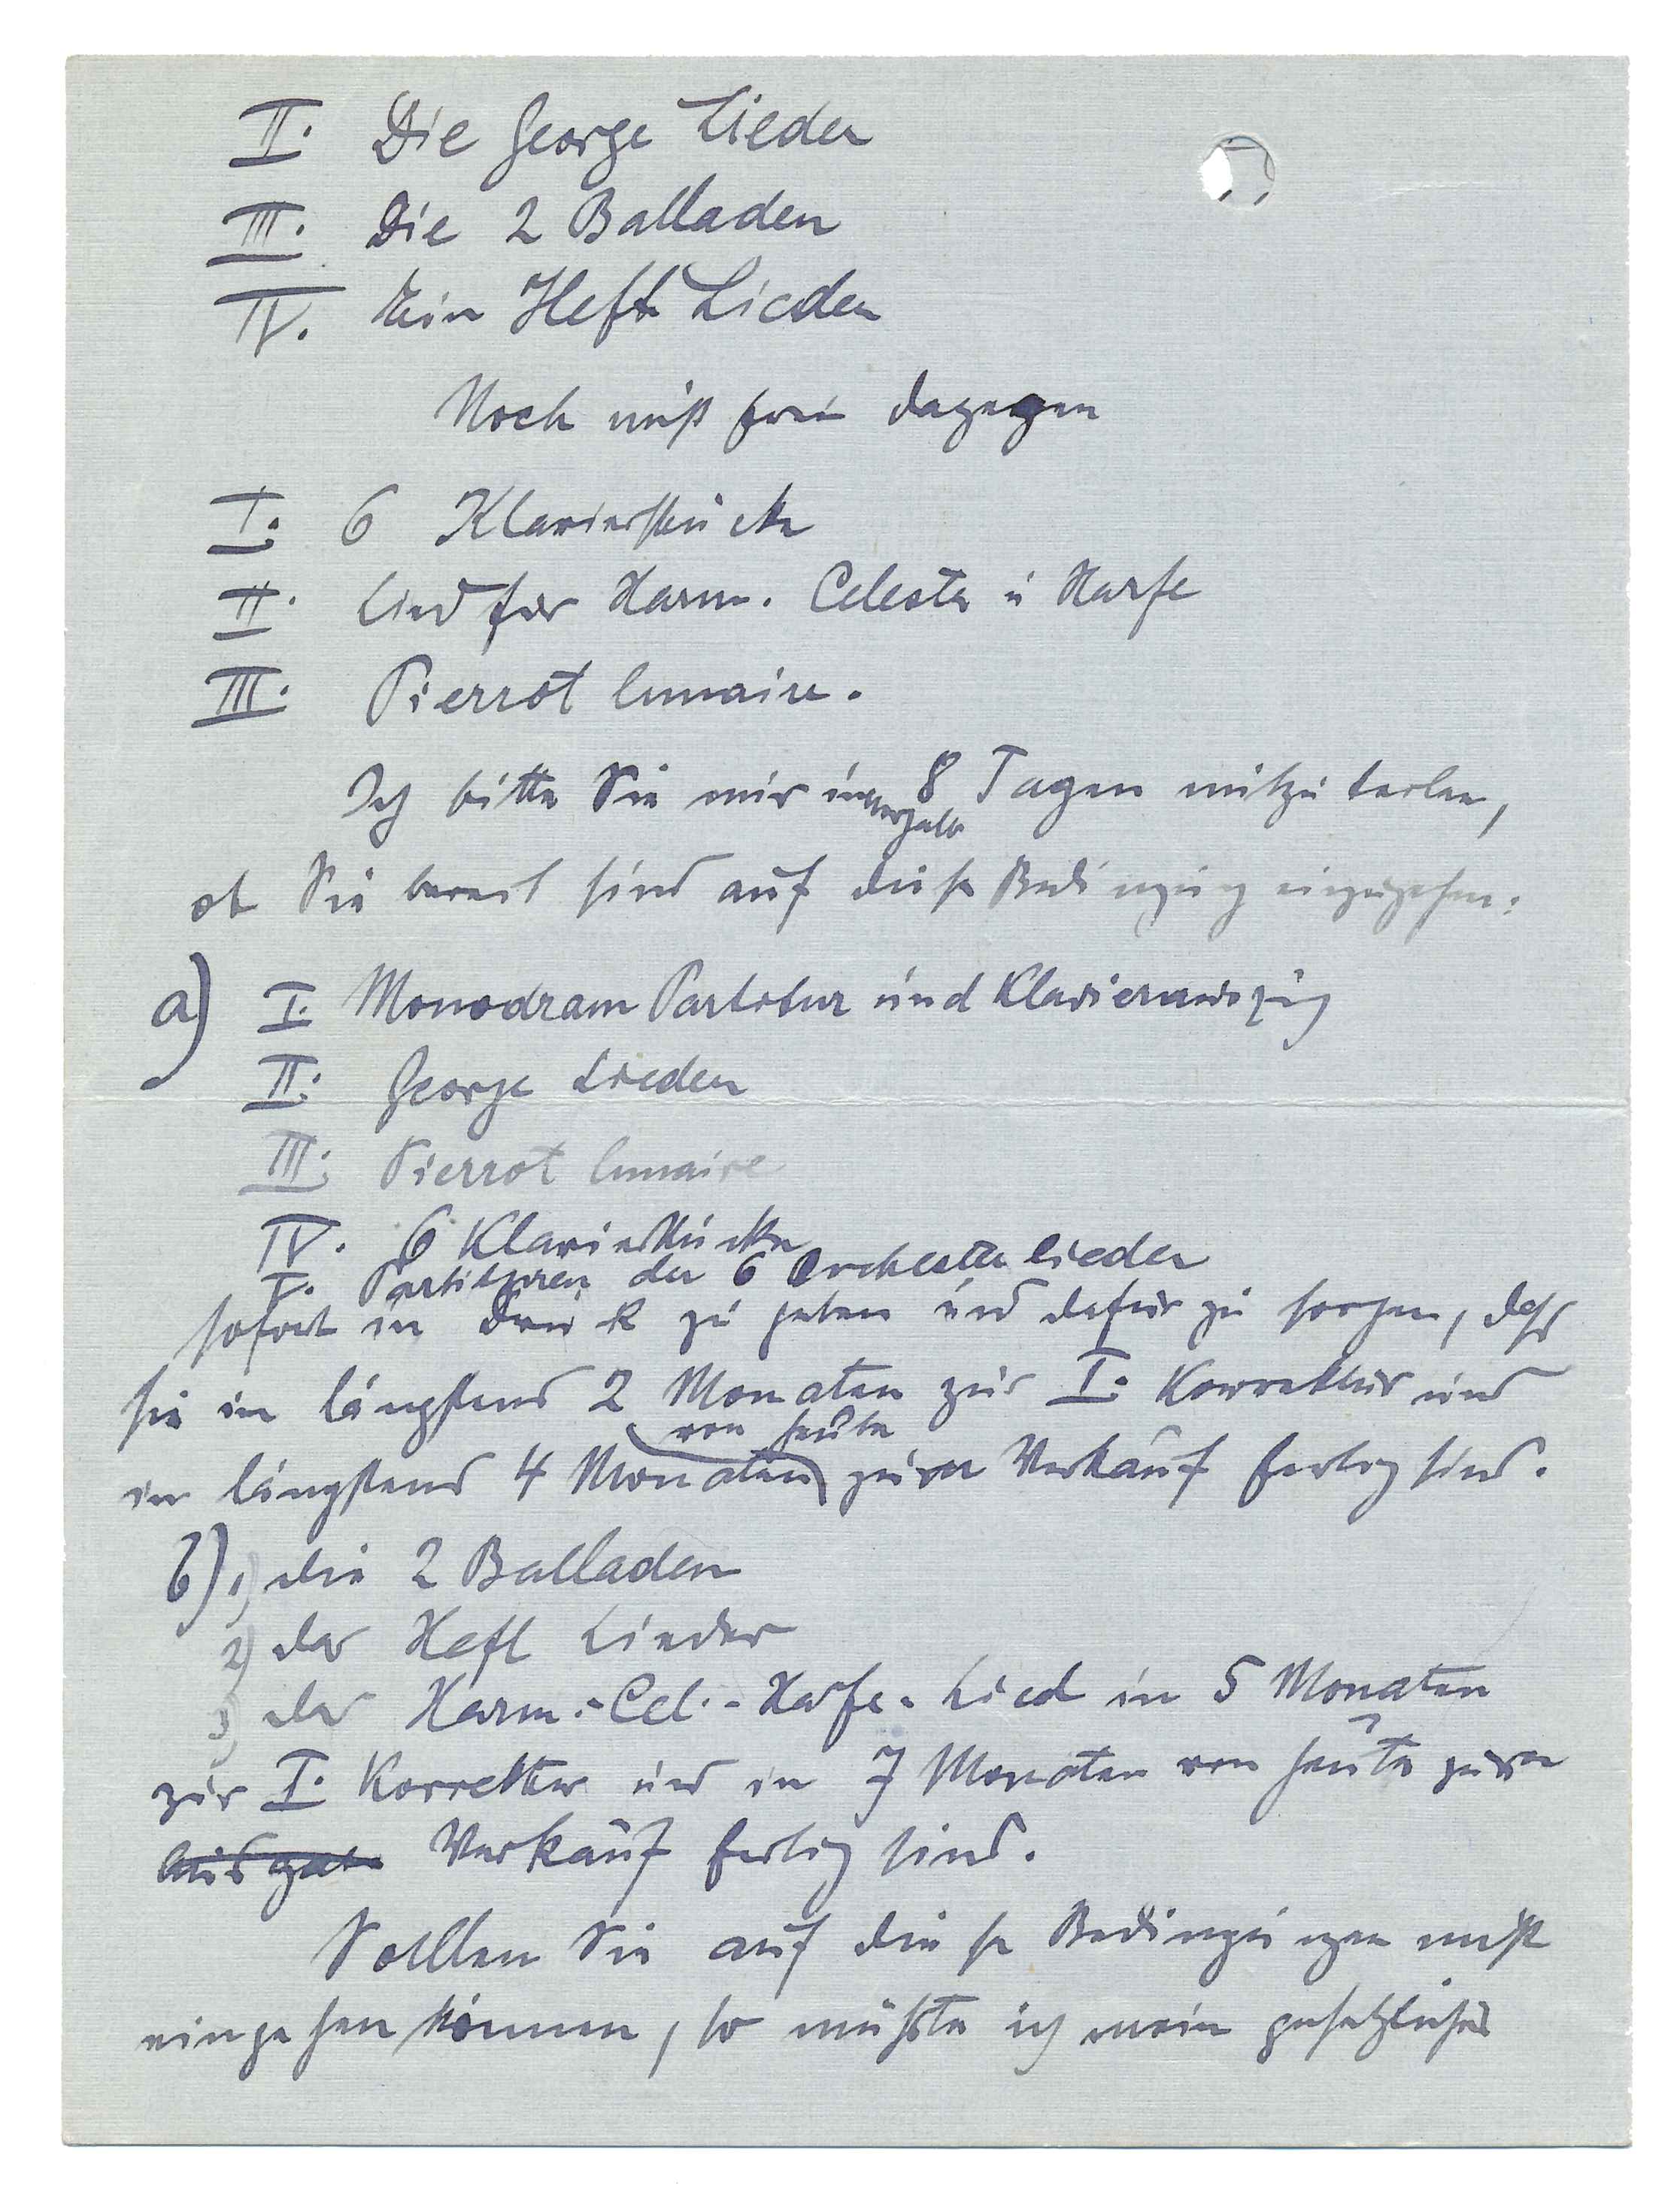 II. Die George Lieder
III. Die 2 Balladen
IV. Ein Heft Lieder
Noch nicht frei dagegen
I. 6 Klavierstücke
II. Lied für Harm. Celesta u Harfe
III. Pierrot lunaire.
Ich bitte Sie mir innerhalb 8 Tagen mitzuteilen,
ob Sie bereit sind auf diese Bedingung einzugehen:
a) I. Monodram Partitur und Klavierauszug
II. George Lieder
III. Pierrot lunaire
IV. 6 Klavierstücke
V. Partituren der 6 Orchesterlieder
sofort in Druck zu geben und dafür zu sorgen, dass
sie in längstens 2 Monaten zur I. Korrektur und
von heute
in längstens 4 Monaten zum Verkauf fertig sind.
b) 1) die 2 Balladen
2) das Heft Lieder
3) das Harm.-Cel.-Harfe-Lied in 5 Monaten
zur I. Korrektur und in 7 Monaten von heute zum
Ausgabe Verkauf fertig sind.
Sollten Sie auf diese Bedingungen nicht
eingehen können, so müsste ich mein gesetzliches